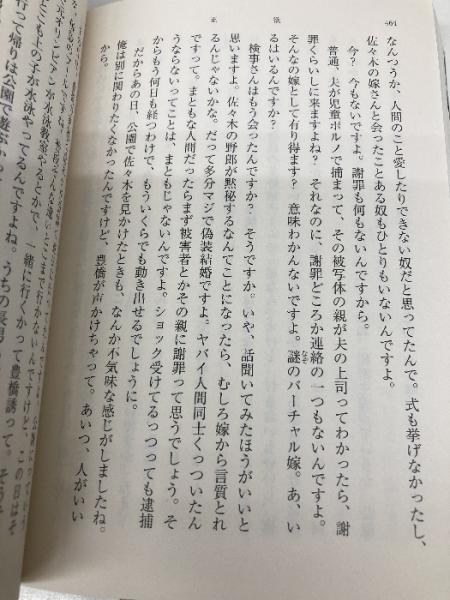 461
正欲
なんつうか、人間のこと愛したりできない奴だと思ってたんで。式も挙げなかったし、
佐々木の嫁さんと会ったことある奴もひとりもいないんですよ。
今？　今もないですよ。謝罪も何もないんですから。
普通、夫が児童ポルノで捕まって、その被写体の親が夫の上司ってわかったら、謝
罪くらいしに来ますよね？　それなのに、謝罪どころか連絡の一つもないんですよ。
そんなの嫁として有り得ます？　意味わかんないですよ。謎のバーチャル嫁。あ、い
はいるんですか？
検事さんはもう会ったんですか？　そうですか。いや、話聞いてみたほうがいいと
思いますよ。佐々木の野郎が黙秘するなんてことになったら、むしろ嫁から言質とれ
るんじゃないかな。だって多分マジで偽装結婚ですよ。ヤバイ人間同士くっついたん
ですって。まともな人間だったらまず被害者とかその親に謝罪って思うでしょう。そ
うならないってことは、まともじゃないんですよ。ショック受けてるっつっても逮捕
からもう何日も経つわけで、もういくらでも動き出せるでしょうに。
だからあの日、公園で佐々木を見かけたときも、なんか不気味な感じがしましたね。
俺は別に関わりたくなかったんですけど、豊橋が声かけちゃって。あいつ、人がいい
から。
行って帰りは公園で遊ぶか
一緒に行くかって豊橋誘って。
うちの長男